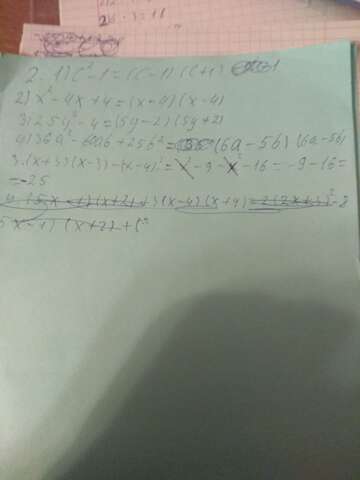 2. 1) c²-1=(c-1)(c+1)
2) x²-4x+4=(x-4)(x-4)
3) 25y²-4=(5y-2)(5y+2)
4) 36a²-60ab+25b²= (6a-5b)(6a-5b)
3.(x+3)(x-3)-(x-4)²=x²-9-x²-16=-9-16=
=-25
(5x-1)(x+2)+3(x-4)(x+4)=2(2x+3)²-8
5x-1)(x+2)+(